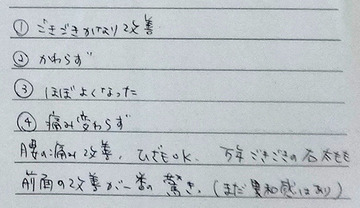 ① ごきごきかなり改善
② かわらず
③ ほぼよくなった
④ 痛み変わらず
腰の痛み改善、ひざもOK、万年ごきごきの右太もも
前面の改善が一番の驚き。(まだ異和感はあり)